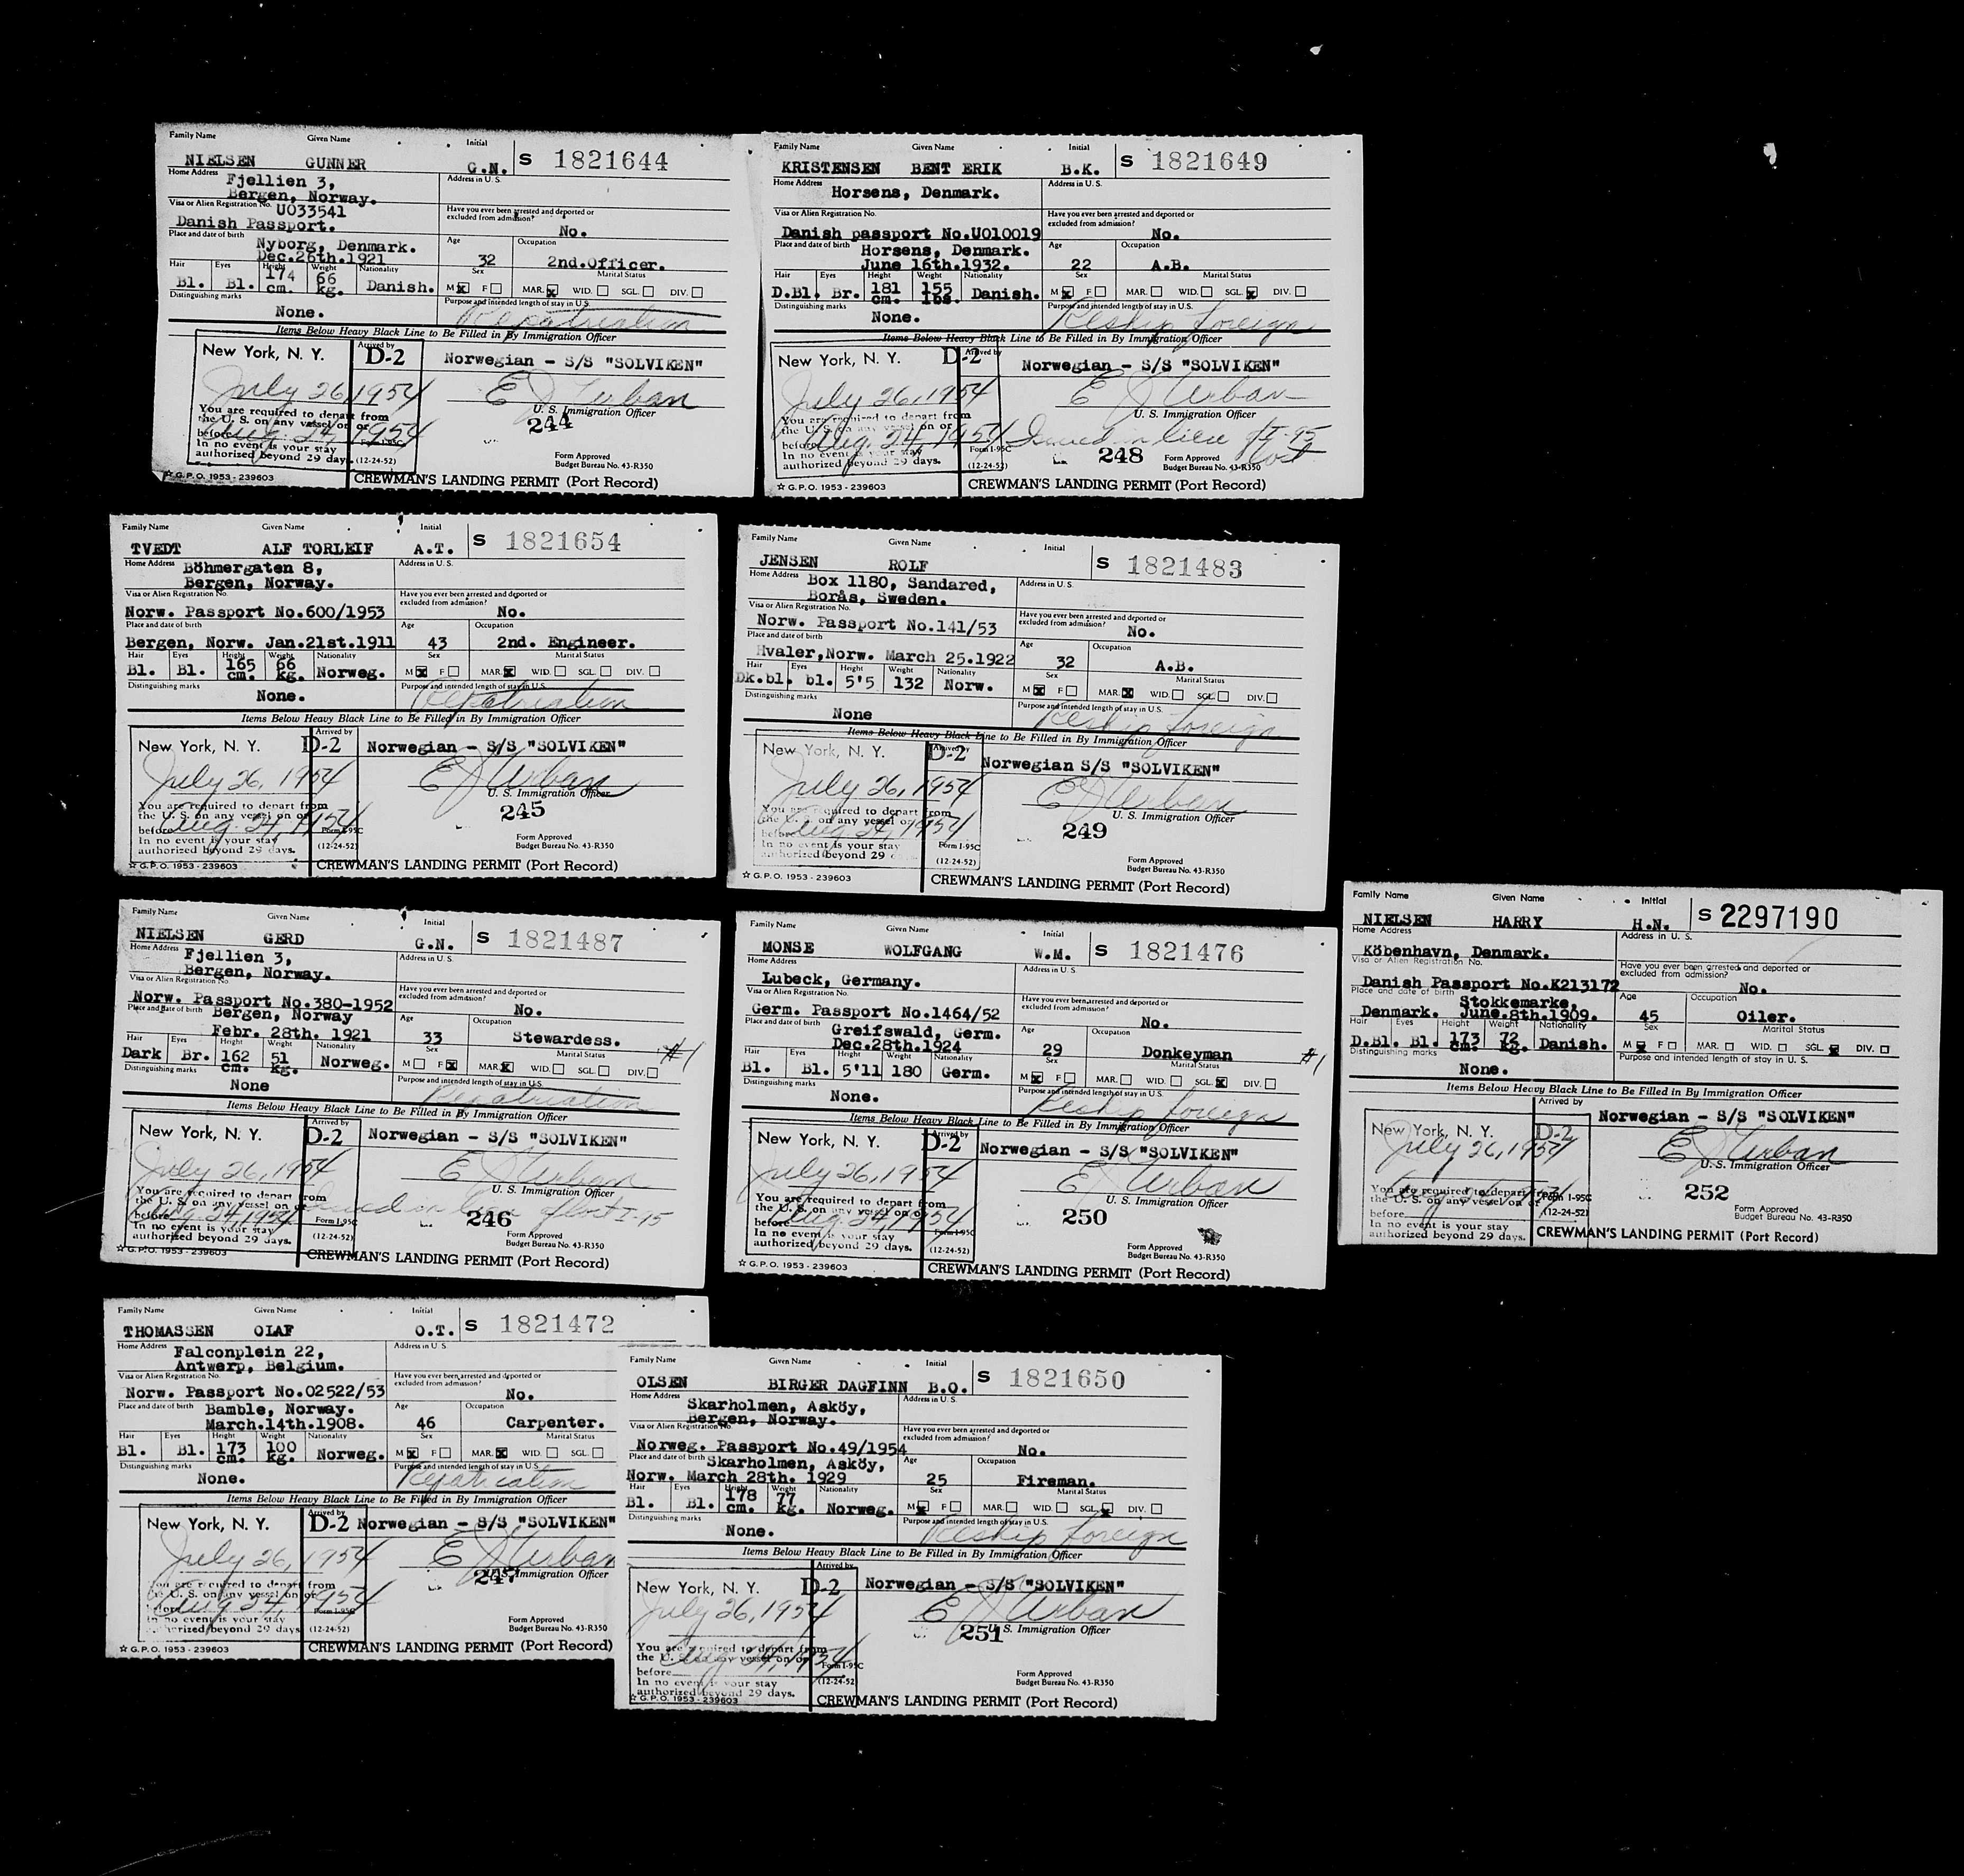 Family Name Given Name Initial
NIELSEN GUNNER G.N. S 1821644
Home Address Fjellien 3, Address in U. S.
Bergen, Norway.
Visa or Alien Registration No. U033541 Have you ever been arrested and deported or excluded from admission?
Danish Passport. No.
Place and date of birth Nyborg, Denmark. Age Occupation
Dec.26th.1921 32 2nd.Officer.
Hair Eyes Height Weight Nationality Sex Marital Status
Bl. Bl. 174 cm. 66 kg. Danish. M F MAR. WID. SGL. DIV.
Distinguishing marks Purpose and intended length of stay in U.S.
None. Repatriation
Items Below Heavy Black Line to Be Filled in By Immigration Officer
New York, N. Y. Arrived by
D-2 Norwegian - S/S "SOLVIKEN"
July 26, 1954 E J Urban
You are required to depart from U. S. Immigration Officer
the U. S. on any vessel on or 244
before Aug. 24, 1954 Form I-95C
In no event is your stay Form Approved
authorized beyond 29 days. (12-24-52) Budget Bureau No. 43-R350
☆ G.P.O. 1953-239603 CREWMAN'S LANDING PERMIT (Port Record)
Family Name Given Name Initial
KRISTENSEN BENT ERIK B.K. S 1821649
Home Address Address in U. S.
Horsens, Denmark.
Visa or Alien Registration No. Have you ever been arrested and deported or excluded from admission?
Danish passport No.U010019 No.
Place and date of birth Horsens, Denmark. Age Occupation
June 16th.1932. 22 A.B.
Hair Eyes Height Weight Nationality Sex Marital Status
D.Bl. Br. 181 cm. 155 lbs. Danish. M F MAR. WID. SGL. DIV.
Distinguishing marks Purpose and intended length of stay in U.S.
None. Reship foreign
Items Below Heavy Black Line to Be Filled in By Immigration Officer
New York, N. Y. Arrived by
D-2 Norwegian - S/S "SOLVIKEN"
July 26, 1954 E J Urban
You are required to depart from U. S. Immigration Officer
the U. S. on any vessel on or
before Aug. 24, 1954 Issued in lieu of I-95 lost
In no event is your stay Form I-95C 248 Form Approved
authorized beyond 29 days. (12-24-52) Budget Bureau No. 43-R350
☆ G.P.O. 1953-239603 CREWMAN'S LANDING PERMIT (Port Record)
Family Name Given Name Initial
TVEDT ALF TORLEIF A.T. S 1821654
Home Address Böhmergaten 8, Address in U. S.
Bergen, Norway.
Visa or Alien Registration No. Have you ever been arrested and deported or excluded from admission?
Norw. Passport No.600/1953 No.
Place and date of birth Age Occupation
Bergen, Norw. Jan.21st.1911 43 2nd. Engineer.
Hair Eyes Height Weight Nationality Sex Marital Status
Bl. Bl. 165 cm. 66 kg. Norweg. M F MAR. WID. SGL. DIV.
Distinguishing marks Purpose and intended length of stay in U.S.
None. Repatriation
Items Below Heavy Black Line to Be Filled in By Immigration Officer
New York, N. Y. Arrived by
D-2 Norwegian - S/S "SOLVIKEN"
July 26, 1954 E J Urban
You are required to depart from U. S. Immigration Officer
the U. S. on any vessel on or 245
before Aug. 24, 1954 Form I-95C
In no event is your stay Form Approved
authorized beyond 29 days. (12-24-52) Budget Bureau No. 43-R350
☆ G.P.O. 1953-239603 CREWMAN'S LANDING PERMIT (Port Record)
Family Name Given Name Initial
JENSEN ROLF S 1821483
Home Address Box 1180, Sandared, Address in U. S.
Borås, Sweden.
Visa or Alien Registration No. Have you ever been arrested and deported or excluded from admission?
Norw. Passport No.141/53 No.
Place and date of birth Age Occupation
Hvaler,Norw. March 25.1922 32 A.B.
Hair Eyes Height Weight Nationality Sex Marital Status
Dk.bl. bl. 5'5 132 Norw. M F MAR. WID. SGL. DIV.
Distinguishing marks Purpose and intended length of stay in U.S.
None Reship foreign
Items Below Heavy Black Line to Be Filled in By Immigration Officer
New York, N. Y. Arrived by
D-2 Norwegian S/S "SOLVIKEN"
July 26, 1954 E J Urban
You are required to depart from U. S. Immigration Officer
the U. S. on any vessel on or 249
before Aug. 24, 1954
In no event is your stay Form I-95C Form Approved
authorized beyond 29 (12-24-52) Budget Bureau No. 43-R350
☆ G.P.O. 1953-239603 CREWMAN'S LANDING PERMIT (Port Record)
Family Name Given Name Initial
NIELSEN GERD G.N. S 1821487
Home Address Fjellien 3, Address in U. S.
Bergen, Norway.
Visa or Alien Registration No. Have you ever been arrested and deported or excluded from admission?
Norw. Passport No.380-1952 No.
Place and date of birth Bergen, Norway Age Occupation
Febr. 28th. 1921 33 Stewardess.
Hair Eyes Height Weight Nationality Sex Marital Status #1
Dark Br. 162 cm. 51 kg. Norweg. M F MAR. WID. SGL. DIV.
Distinguishing marks Purpose and intended length of stay in U.S.
None Repatriation
Items Below Heavy Black Line to Be Filled in By Immigration Officer
New York, N. Y. Arrived by
D-2 Norwegian - S/S "SOLVIKEN"
July 26, 1954 E J Urban
You are required to depart from U. S. Immigration Officer
the U. S. on any vessel on or Issued in lieu of lost I-95
before Aug. 24, 1954 Form I-95C 246
In no event is your stay Form Approved
authorized beyond 29 days. (12-24-52) Budget Bureau No. 43-R350
☆ G.P.O. 1953-239603 CREWMAN'S LANDING PERMIT (Port Record)
Family Name Given Name Initial
MONSE WOLFGANG W.M. S 1821476
Home Address Address in U. S.
Lubeck, Germany.
Visa or Alien Registration No. Have you ever been arrested and deported or excluded from admission?
Germ. Passport No.1464/52 No.
Place and date of birth Greifswald, Germ. Age Occupation
Dec.28th.1924 29 Donkeyman #1
Hair Eyes Height Weight Nationality Sex Marital Status
Bl. Bl. 5'11 180 Germ. M F MAR. WID. SGL. DIV.
Distinguishing marks Purpose and intended length of stay in U.S.
None. Reship foreign
Items Below Heavy Black Line to Be Filled in By Immigration Officer
New York, N. Y. Arrived by
D-2 Norwegian - S/S "SOLVIKEN"
July 26, 1954 E J Urban
You are required to depart from U. S. Immigration Officer
the U. S. on any vessel on or 250
before Aug. 24, 1954 Form I-95C
In no event is your stay Form Approved
authorized beyond 29 days. (12-24-52) Budget Bureau No. 43-R350
☆ G.P.O. 1953-239603 CREWMAN'S LANDING PERMIT (Port Record)
Family Name Given Name Initial
NIELSEN HARRY H.N. S 2297190
Home Address Address in U. S.
Köbenhavn, Denmark.
Visa or Alien Registration No. Have you ever been arrested and deported or excluded from admission?
Danish Passport No.K213172 No.
Place and date of birth Stokkemarke, Age Occupation
Denmark. June.8th.1909. 45 Oiler.
Hair Eyes Height Weight Nationality Sex Marital Status
D.Bl. Bl. 173 cm. 72 kg. Danish. M F MAR. WID. SGL. DIV.
Distinguishing marks Purpose and intended length of stay in U. S.
None.
Items Below Heavy Black Line to Be Filled in By Immigration Officer
Arrived by
New York, N. Y. D-2 Norwegian - S/S "SOLVIKEN"
July 26, 1954 E J Urban
U. S. Immigration Officer
You are required to depart Form I-95C 252
the U. S. on any vessel on or (12-24-52)
before Form Approved
In no event is your stay Budget Bureau No. 43-R350
authorized beyond 29 days. CREWMAN'S LANDING PERMIT (Port Record)
Family Name Given Name Initial
THOMASSEN OLAF O.T. S 1821472
Home Address Falconplein 22, Address in U. S.
Antwerp, Belgium.
Visa or Alien Registration No. Have you ever been arrested and deported or excluded from admission?
Norw. Passport No.02522/53 No.
Place and date of birth Bamble, Norway. Age Occupation
March.14th.1908. 46 Carpenter.
Hair Eyes Height Weight Nationality Sex Marital Status
Bl. Bl. 173 cm. 100 kg. Norweg. M F MAR. WID. SGL.
Distinguishing marks Purpose and intended length of stay in U.S.
None. Repatriation
Items Below Heavy Black Line to Be Filled in By Immigration Officer
New York, N. Y. Arrived by
D-2 Norwegian - S/S "SOLVIKEN"
July 26, 1954 E J Urban
You are required to depart from 247 U. S. Immigration Officer
the U. S. on any vessel on or
before Aug. 24, 1954 Form I-95C
In no event is your stay Form Approved
authorized beyond 29 days (12-24-52) Budget Bureau No. 43-R350
☆ G.P.O. 1953-239603 CREWMAN'S LANDING PERMIT (Port Record)
Family Name Given Name Initial
OLSEN BIRGER DAGFINN B.O. S 1821650
Home Address Skarholmen, Asköy, Address in U. S.
Bergen, Norway.
Visa or Alien Registration No. Have you ever been arrested and deported or excluded from admission?
Norweg. Passport No.49/1954 No.
Place and date of birth Skarholmen, Asköy, Age Occupation
Norw. March 28th. 1929 25 Fireman.
Hair Eyes Height Weight Nationality Sex Marital Status
Bl. Bl. 178 cm. 77 kg. Norweg. M F MAR. WID. SGL. DIV.
Distinguishing marks Purpose and intended length of stay in U.S.
None. Reship foreign
Items Below Heavy Black Line to Be Filled in By Immigration Officer
New York, N. Y. Arrived by
D-2 Norwegian - S/S "SOLVIKEN"
July 26, 1954 E J Urban
251 U. S. Immigration Officer
You are required to depart from
the U. S. on any vessel on or Aug. 24, 1954
before Form I-95C Form Approved
In no event is your stay (12-24-52) Budget Bureau No. 43-R350
authorized beyond 29 days.
☆ G.P.O. 1953-239603 CREWMAN'S LANDING PERMIT (Port Record)